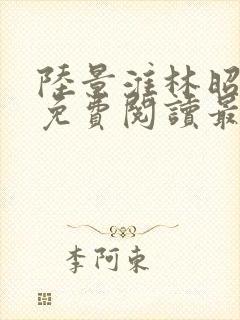 陸景淮林昭
免費閱讀最
李阿東